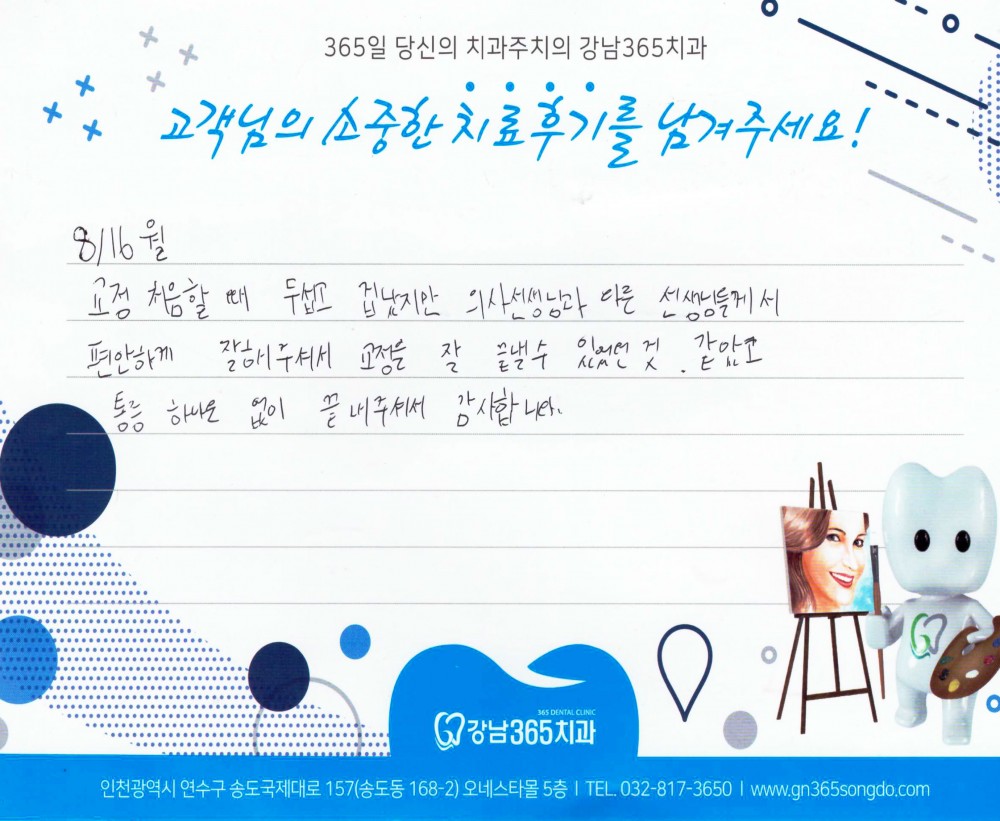 365일 당신의 치과주치의 강남365치과
고객님의 소중한 치료후기를 남겨주세요!
8/16 월
교정 처음할 때 두섭고 겁났지만 의사선생님과 다른 선생님들께서
편안하게 잘해주셔서 교정을 잘 끝낼수 있었던 것 . 같았고
통증 하나도 없이 끝내주셔서 감사합니다.
365 DENTAL CLINIC
강남365치과
인천광역시 연수구 송도국제대로 157(송도동 168-2) 오네스타몰 5층 I TEL. 032-817-3650 I www.gn365songdo.com